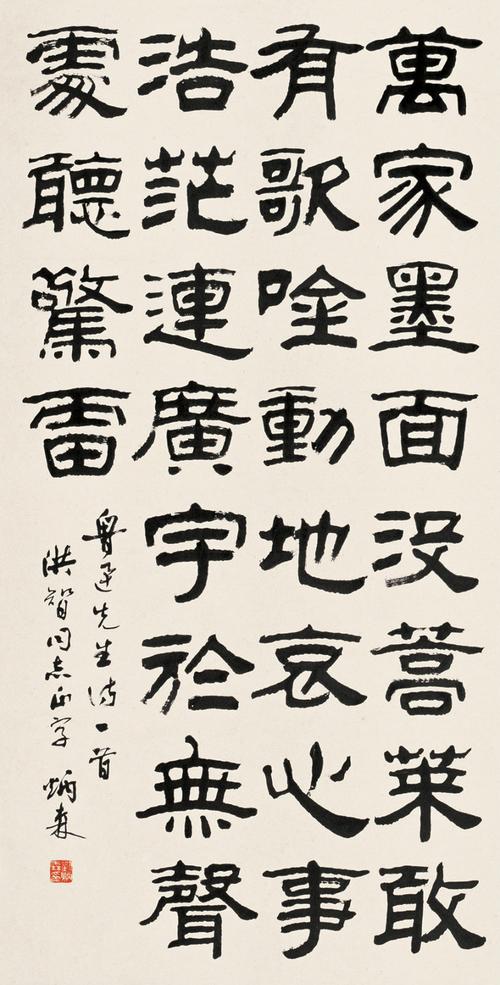 萬家墨面没蒿萊敢
有歌唫動地哀心事
浩茫連廣宇於無聲
處聽驚雷
魯迅先生詩一首
洪智同志正字 炳森